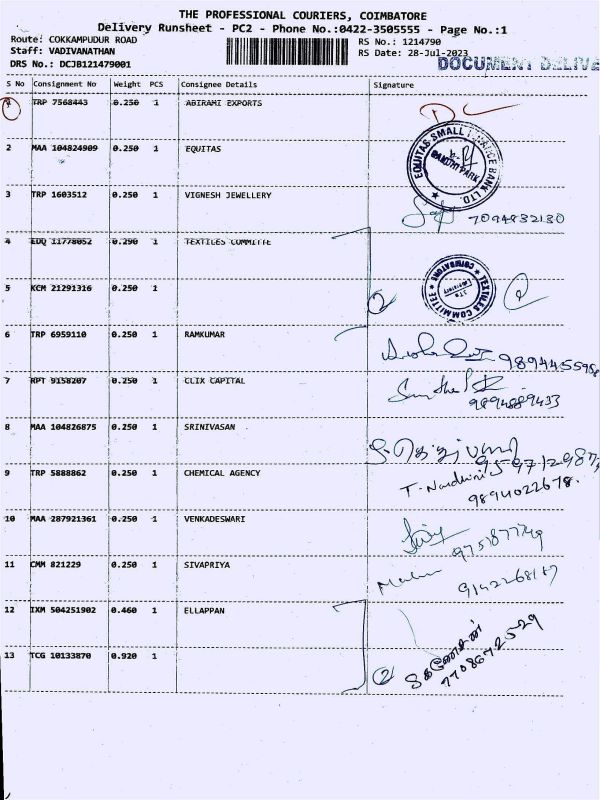 THE PROFESSIONAL COURIERS, COIMBATORE
Delivery Runsheet - PC2 - Phone No.:0422-3505555 - Page No.:1
Route: COKKAMPUDUR ROAD
RS No.: 1214790
Staff: VADIVANATHAN
RS Date: 28-Jul-2023
DRS No.: DCJB121479001
DOCUMENT DELIVE
S No Consignment No Weight PCS Consignee Details Signature
1 TRP 7568443 0.250 1 ABIRAMI EXPORTS
2 MAA 104824909 0.250 1 EQUITAS
EQUITAS SMALL FINANCE BANK LTD.
3 TRP 1603512 0.250 1 VIGNESH JEWELLERY
7094832130
4 EDQ 11778052 0.290 1 TEXTILES COMMITTE
5 KCM 21291316 0.250 1
TEXTILES COMMITTEE COIMBATORE
2
6 TRP 6959110 0.250 1 RAMKUMAR
7 RPT 9158207 0.250 1 CLIX CAPITAL
9894889433
8 MAA 104826875 0.250 1 SRINIVASAN
9 TRP 5888862 0.250 1 CHEMICAL AGENCY
T. Nandhini
9894022678.
10 MAA 287921361 0.250 1 VENKADESWARI
11 CMM 821229 0.250 1 SIVAPRIYA
12 IXM 504251902 0.460 1 ELLAPPAN
13 TCG 10133870 0.920 1
2
கணேசன்
7708672529